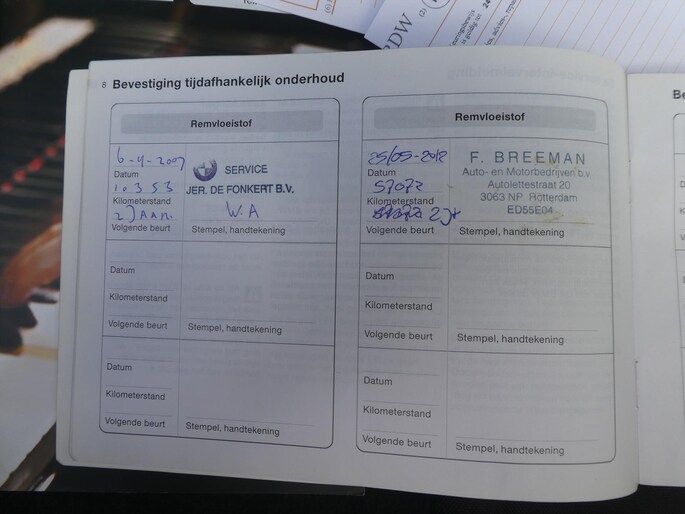 8 Bevestiging tijdafhankelijk onderhoud
Remvloeistof
6-4-2007
Datum
10353
Kilometerstand
2 JAAR.
Volgende beurt
SERVICE
JER. DE FONKERT B.V.
W.A
Stempel, handtekening
Datum
Kilometerstand
Volgende beurt
Stempel, handtekening
Datum
Kilometerstand
Volgende beurt
Stempel, handtekening
Remvloeistof
25/05-2012
Datum
57072
Kilometerstand
2Jr
Volgende beurt
F. BREEMAN
Auto- en Motorbedrijven b.v.
Autolettestraat 20
3063 NP Rotterdam
ED55E04
Stempel, handtekening
Datum
Kilometerstand
Volgende beurt
Stempel, handtekening
Datum
Kilometerstand
Volgende beurt
Stempel, handtekening
Be
RDW